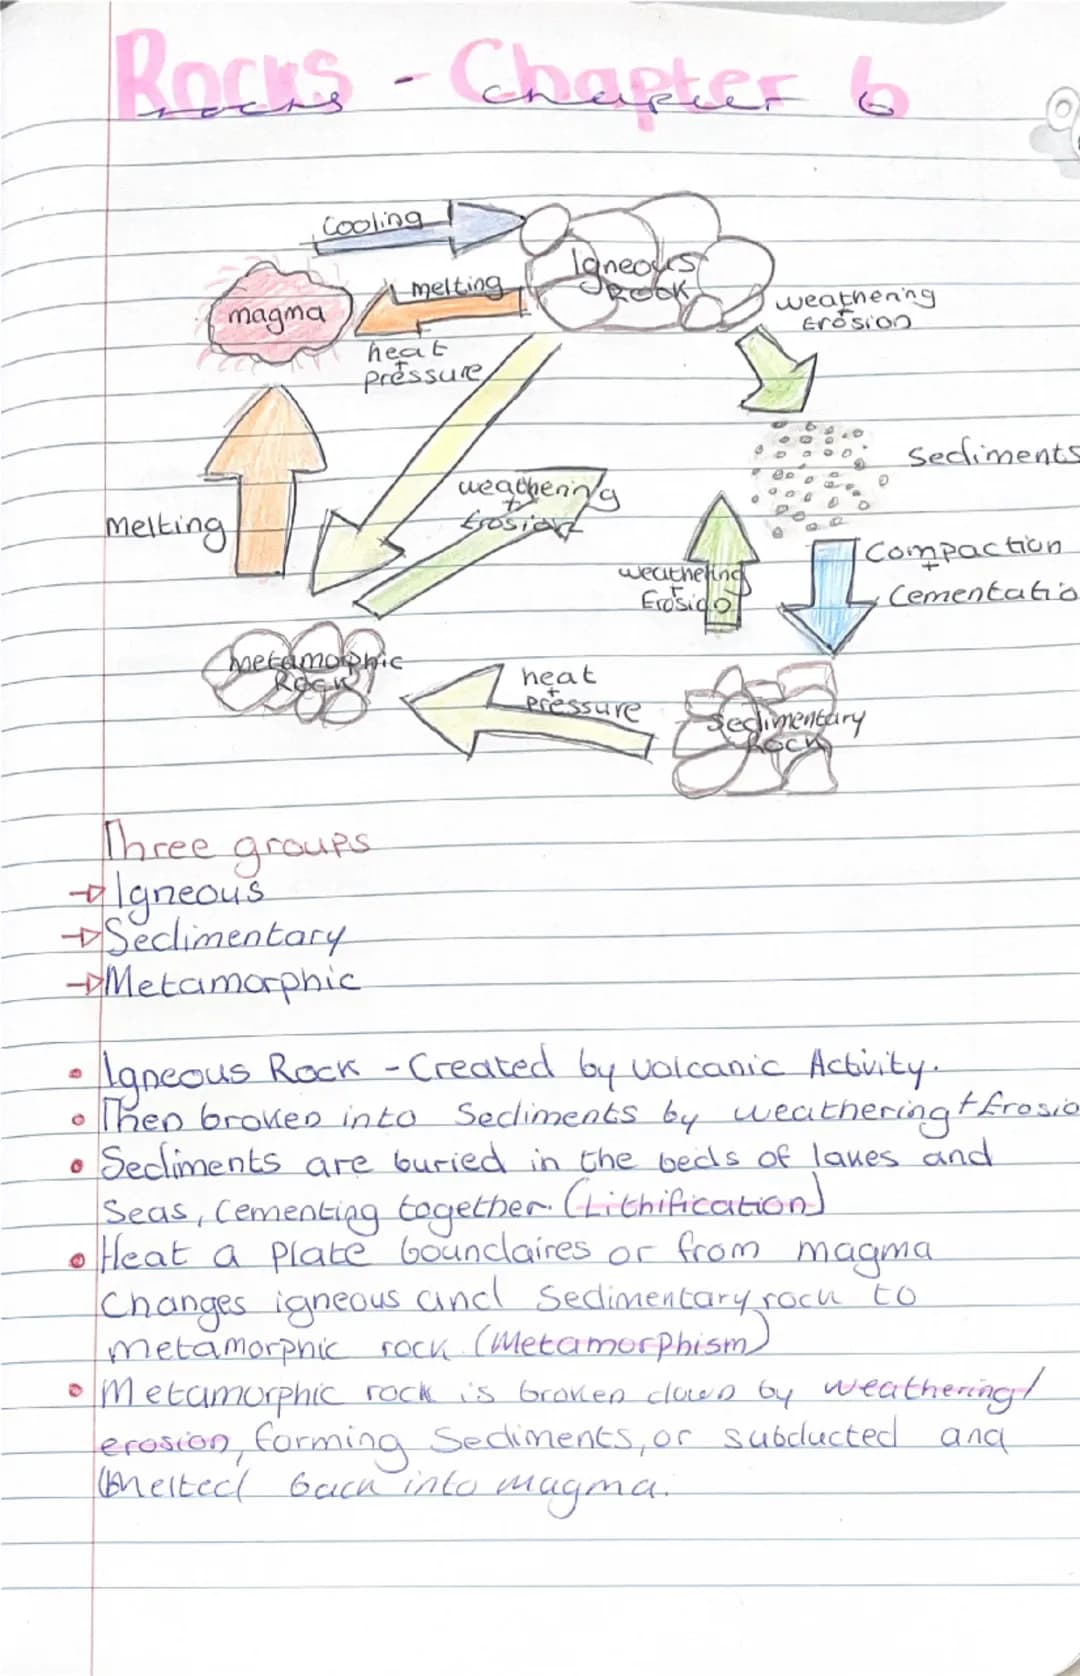 Rocks - Chapter 6
rocks chapter 6
Cooling
Igneous
Rock
melting
magma
heat
+
pressure
weathering
+
Erosion
Sediments
weathering
+
Erosion
melting
weathering
+
Erosio
Compaction
+
Cementatio
Metamorphic
Rock
heat
+
pressure
Sedimentary
Rock
Three groups
Igneous
Sedimentary
Metamorphic
Igneous Rock - Created by volcanic Activity.
Then broken into Sediments by weathering + Erosio
Sediments are buried in the beds of lakes and
Seas, Cementing together. (Lithification)
Heat a Plate boundaires or from magma
Changes igneous and Sedimentary rock to
metamorphic rock. (Metamorphism)
Metamorphic rock is broken down by weathering/
erosion, forming Sediments, or subducted and
melted back into magma.